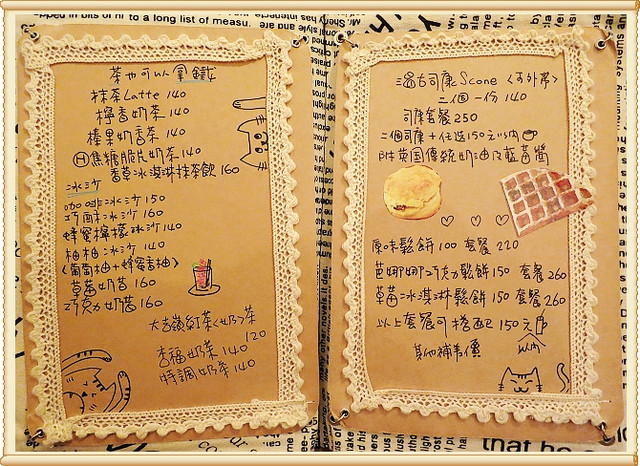 茶也可以拿鐵
抹茶Latte 140
檸香奶茶 140
榛果奶香茶 140
H焦糖脆片奶茶 140
香草冰淇淋抹茶飲 160
冰沙
咖啡冰沙 150
巧酥冰沙 160
蜂蜜檸檬冰沙 140
柚柚冰沙 140
(葡萄柚+蜂蜜香柚)
草莓奶昔 160
巧克力奶昔 160
大吉嶺紅茶<奶>茶
120
幸福奶茶 140
特調奶茶 140
溫古司康Scone <可外帶>
二個一份 140
司康套餐 250
二個司康+任選150元以內
附英國傳統奶油及藍莓醬
原味鬆餅 100 套餐 220
芭娜娜巧克力鬆餅 150 套餐 260
草莓冰淇淋鬆餅 150 套餐 260
以上套餐可搭配 150元
以內
其他補差價
bits of hi to a long list of measu.
that he co